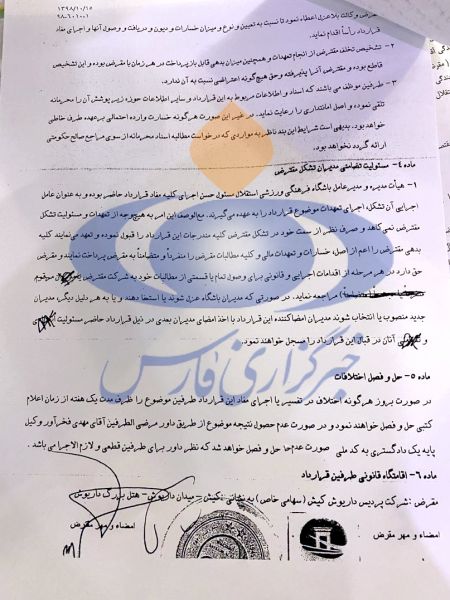 ۱۳۹۸/۱۰/۱۵
۹۸-۶۰۱۰۰۱
مقرض وکالت بلاعزل اعطاء نمود تا نسبت به تعیین و نوع و میزان خسارات و دیون و دریافت و وصول آنها و اجرای مفاد
قرارداد رأساً اقدام نماید.
۲- تشخیص تخلف مقترض از انجام تعهدات و همچنین میزان بدهی قابل بازپرداخت در هر زمان با مقرض بوده و این تشخیص
قاطع بوده و مقترض آنرا پذیرفته و حق هیچگونه اعتراضی نسبت به آن ندارد.
۳- طرفین موظف می باشند که اسناد و اطلاعات مربوط به این قرارداد و سایر اطلاعات حوزه زیر پوشش آن را محرمانه
تلقی نموده و اصل امانتداری را رعایت نماید. در غیر این صورت هرگونه خسارت وارده احتمالی بر عهده طرف خاطی
خواهد بود. بدیهی است شرایط این بند ناظر به مواردی که درخواست مطالبه اسناد محرمانه از سوی مراجع صالح حکومتی
ارائه گردد نخواهد بود.
ماده ۴- مسئولیت تضامنی مدیران تشکل مقترض
۱- هیأت مدیره و مدیرعامل باشگاه فرهنگی ورزشی استقلال مسئول حسن اجرای کلیه مفاد قرارداد حاضر بوده و به عنوان عامل
اجرایی آن تشکل، اجرای تعهدات موضوع قرارداد را به عهده می گیرند. مع الوصف این امر به هیچ وجه از تعهدات و مسئولیت تشکل
مقترض نمی کاهد و صرف نظر از سمت خود در تشکل مقترض کلیه مندرجات این قرارداد را قبول نموده و تعهد می نمایند کلیه
بدهی مقترض را اعم از اصل، خسارات و تعهدات مالی و کلیه مطالبات مقرض را منفرداً و متضامناً به مقرض پرداخت نمایند و مقرض
حق دارد در هر مرحله از اقدامات اجرایی و قانونی برای وصول تمام یا قسمتی از مطالبات خود به شرکت مقترض
مراجعه نماید. در صورتی که مدیران باشگاه عزل شوند یا استعفا دهند و یا به هر دلیل دیگر، مدیران
جدید منصوب یا انتخاب شوند مدیران امضاکننده این قرارداد با اخذ امضای مدیران بعدی در ذیل قرارداد حاضر مسئولیت
و آنان در قبال این قرارداد را مسجل خواهند نمود.
ماده ۵- حل و فصل اختلافات
در صورت بروز هرگونه اختلاف در تفسیر یا اجرای مفاد این قرارداد طرفین موضوع را ظرف مدت یک هفته از زمان اعلام
کتبی حل و فصل خواهند نمود و در صورت عدم حصول نتیجه موضوع از طریق داور مرضی الطرفین آقای مهدی فخرآور وکیل
پایه یک دادگستری به کد ملی صورت عدم حل و فصل خواهد شد که نظر داور برای طرفین قطعی و لازم الاجرا می باشد.
ماده ۶- اقامتگاه قانونی طرفین قرارداد
مقرض: شرکت پردیس داریوش کیش (سهامی خاص) به نشانی: کیش – میدان داریوش – هتل بزرگ داریوش
امضاء و مهر مقرض
امضاء و مهر مقرض
خبرگزاری فارس